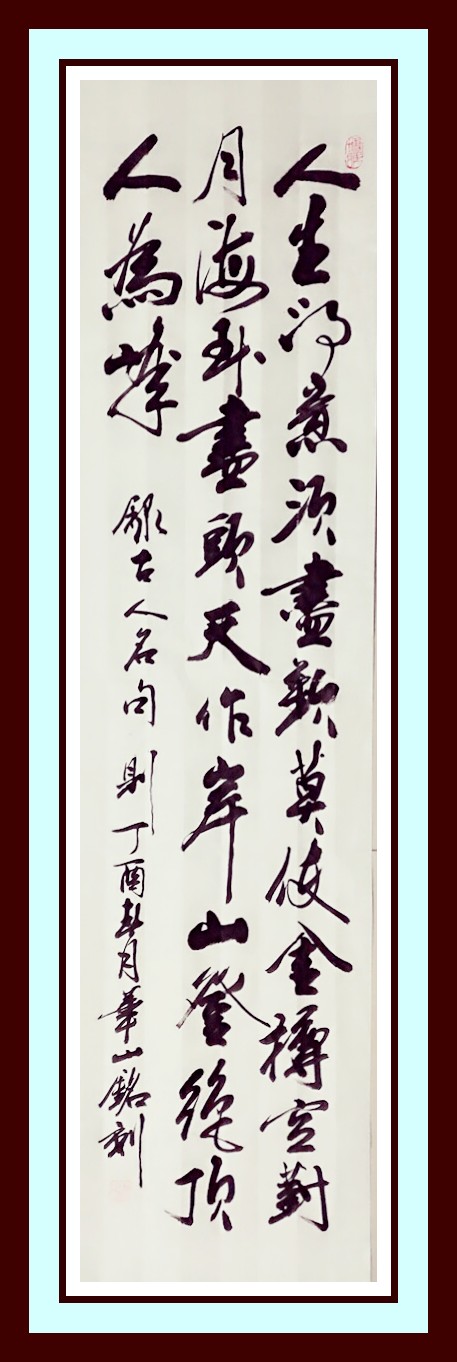 人生得意須盡歡莫使金樽空對
月海到盡頭天作岸山登絕頂
人為峰 錄古人名句 則 丁酉春月華山銘刻